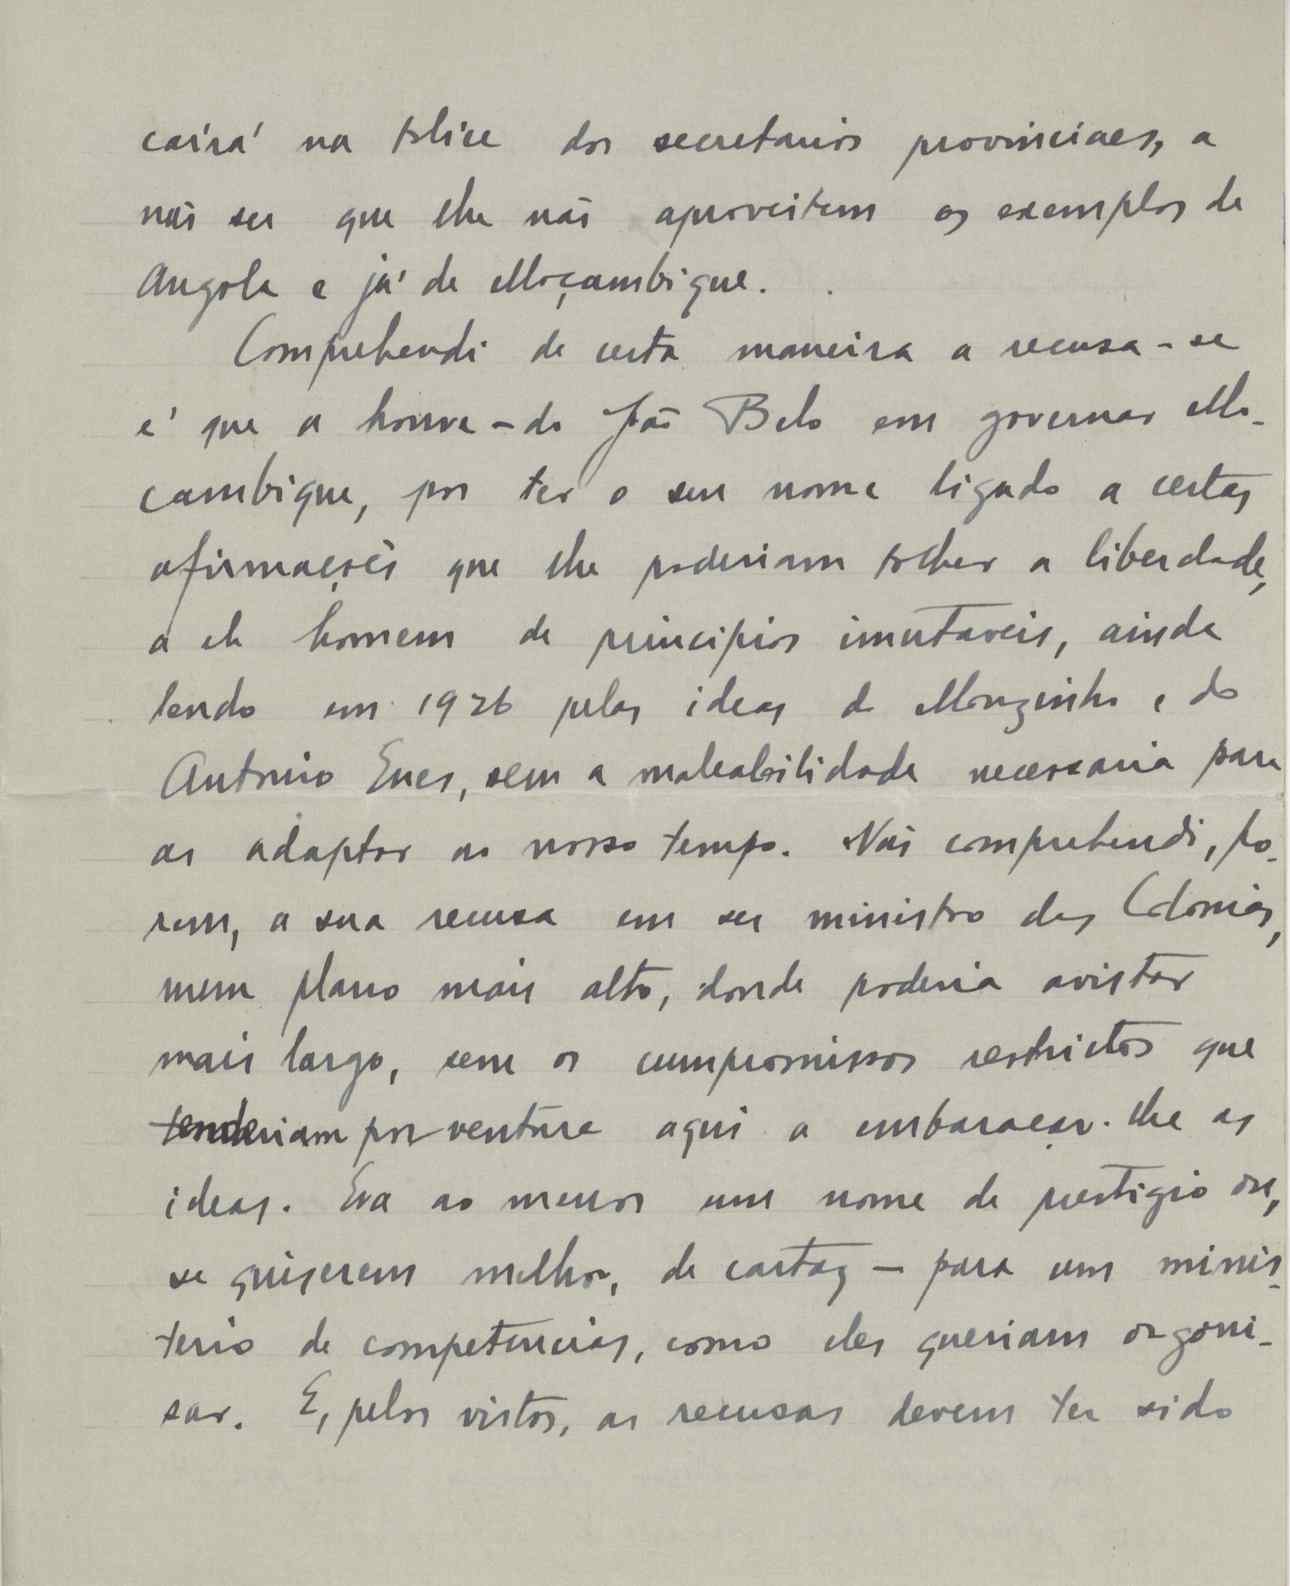 caírá na tolice dos secretarios provinciaes, a
não ser que lhe não aproveitem os exemplos de
Angola e já de Moçambique.
Comprehendi de certa maneira a recusa - se
é que a houve - do João Belo em governar Mo-
çambique, por ter o seu nome ligado a certas
afirmações que lhe poderiam tolher a liberdade,
a ele homem de principios imutaveis, ainda
lendo em 1926 pelas ideas do Mouzinho e do
Antonio Enes, sem a maleabilidade necessaria para
as adaptar ao nosso tempo. Não comprehendi, po-
rem, a sua recusa em ser ministro das Colonias,
num plano mais alto, donde poderia avistar
mais largo, sem os compromissos restrictos que
tenderiam porventura aqui a embaraçar-lhe as
ideas. Era ao menos um nome de prestigio ou,
se quiserem melhor, de cartaz - para um minis-
terio de competencias, como eles queriam organi-
sar. E, pelos vistos, as recusas devem ter sido